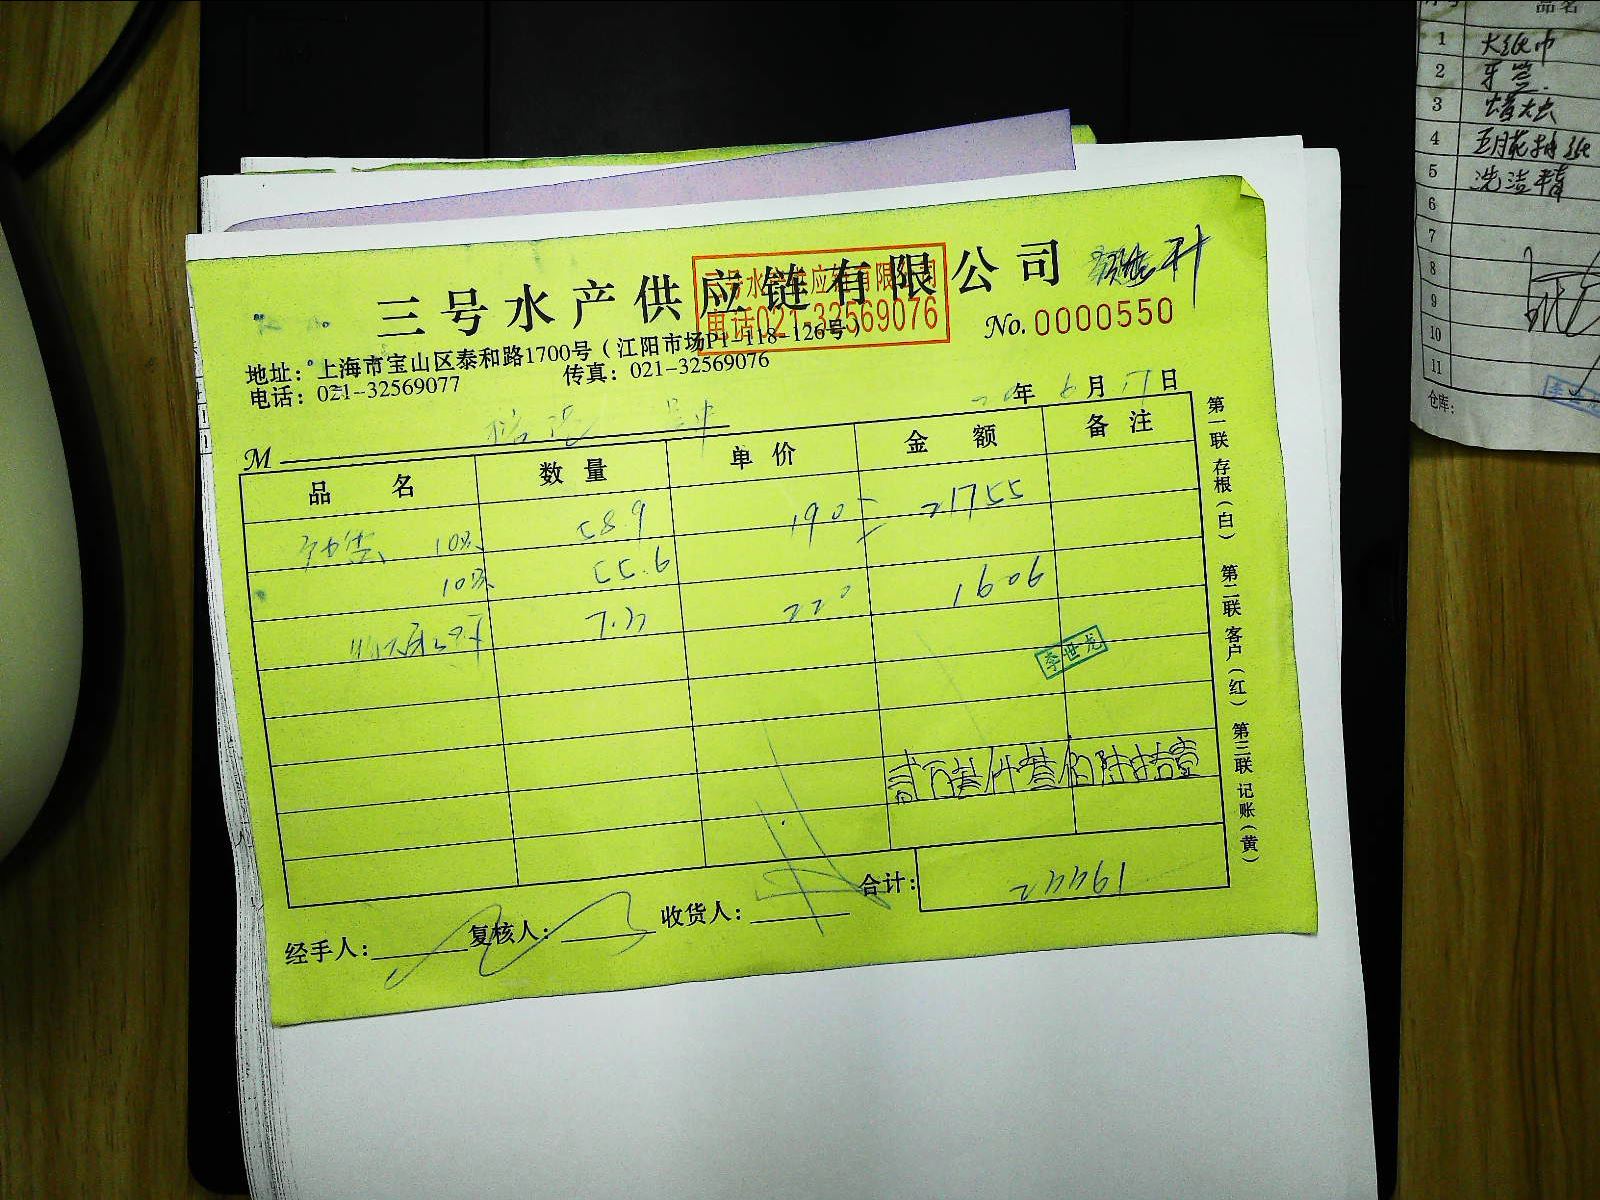 三号水产供应链有限公司
三号水产供应链有限公司
电话021-32569076
No. 0000550
地址：上海市宝山区泰和路1700号（江阳市场P1-118-126号）
电话：021-32569077 传真：021-32569076
20年 6月 17日
M
品名 数量 单价 金额 备注
58.9 190 21755
55.6
7.3 220 1606
李世龙
贰万叁仟叁佰陆拾壹
合计： 23361
经手人： 复核人： 收货人：
第一联 存根（白） 第二联 客户（红） 第三联 记账（黄）
序号 品名
1 大纸巾
2 牙签
3
4 五月花抽纸
5 洗洁精
6
7
8
9
10
11
仓库：